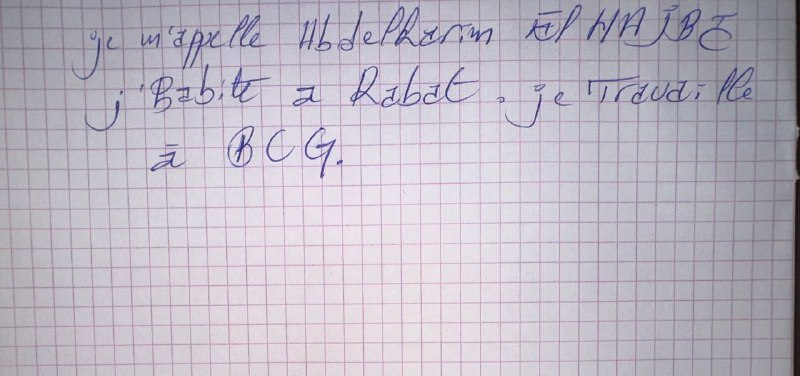 je m'appelle Abdelkarim El HAJBE
j'habite a Rabat. je Travaille
à BCG.